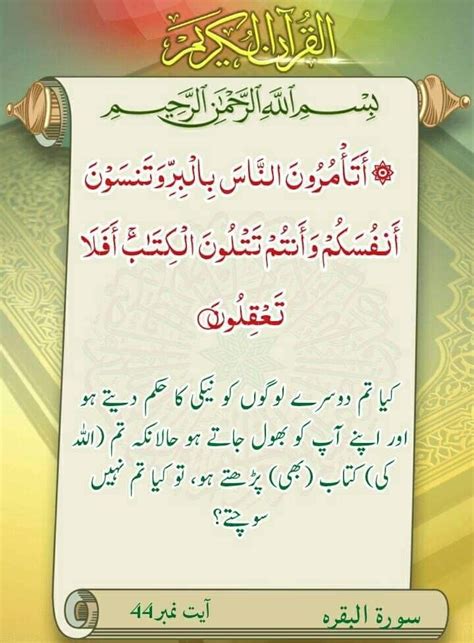 القرآن الكريم
بِسْمِ اللَّهِ الرَّحْمَٰنِ الرَّحِيمِ
۞ أَتَأْمُرُونَ النَّاسَ بِالْبِرِّ وَتَنسَوْنَ
أَنفُسَكُمْ وَأَنتُمْ تَتْلُونَ الْكِتَابَ ۚ أَفَلَا
تَعْقِلُونَ
کیا تم دوسرے لوگوں کو نیکی کا حکم دیتے ہو
اور اپنے آپ کو بھول جاتے ہو حالانکہ تم (اللہ
کی) کتاب (بھی) پڑھتے ہو، تو کیا تم نہیں
سوچتے؟
سورۃ البقرہ آیت نمبر44